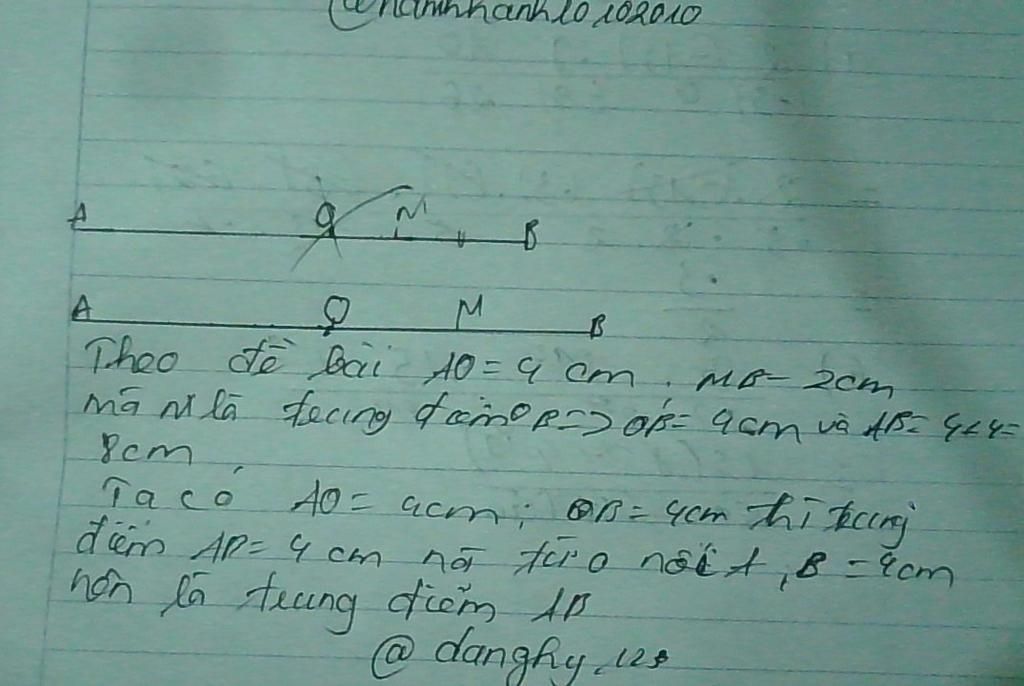 @hanhkhanh10102010
A O M B
A O M B
Theo đề bài AO = 4 cm. MB = 2cm
mà M là trung điểm OB => OB = 4cm và AB = 4+4=
8cm
Ta có AO = 4cm; OB = 4cm thì trung
điểm AB = 4 cm mà từ O nối A, B = 4cm
nên là trung điểm AB
@danghy.12